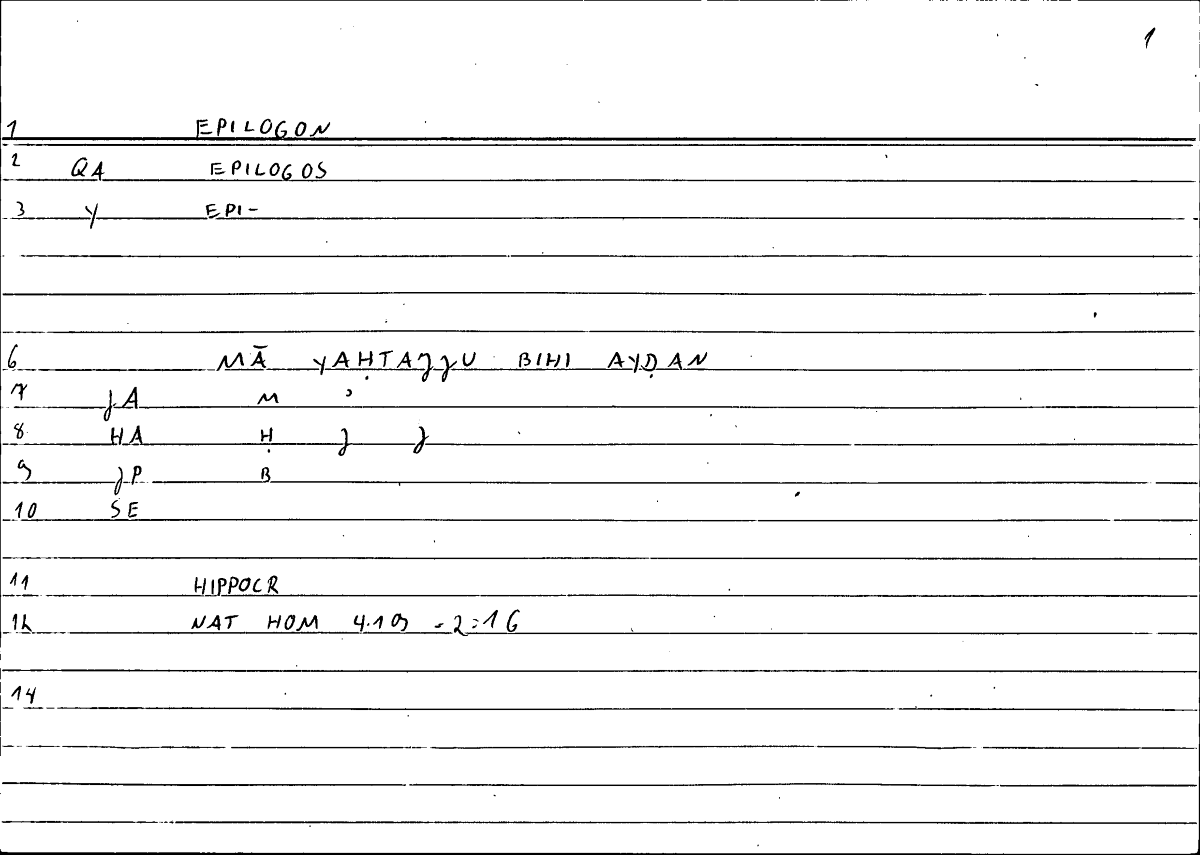 1
1 EPILOGON
2 QA EPILOGOS
3 Y EPI-
6 MĀ YAḤTAJJU BIHI AYḌAN
7 JA M ʾ
8 HA Ḥ J J
9 JP B
10 SE
11 HIPPOCR
12 NAT HOM 4.19 - 2:16
14